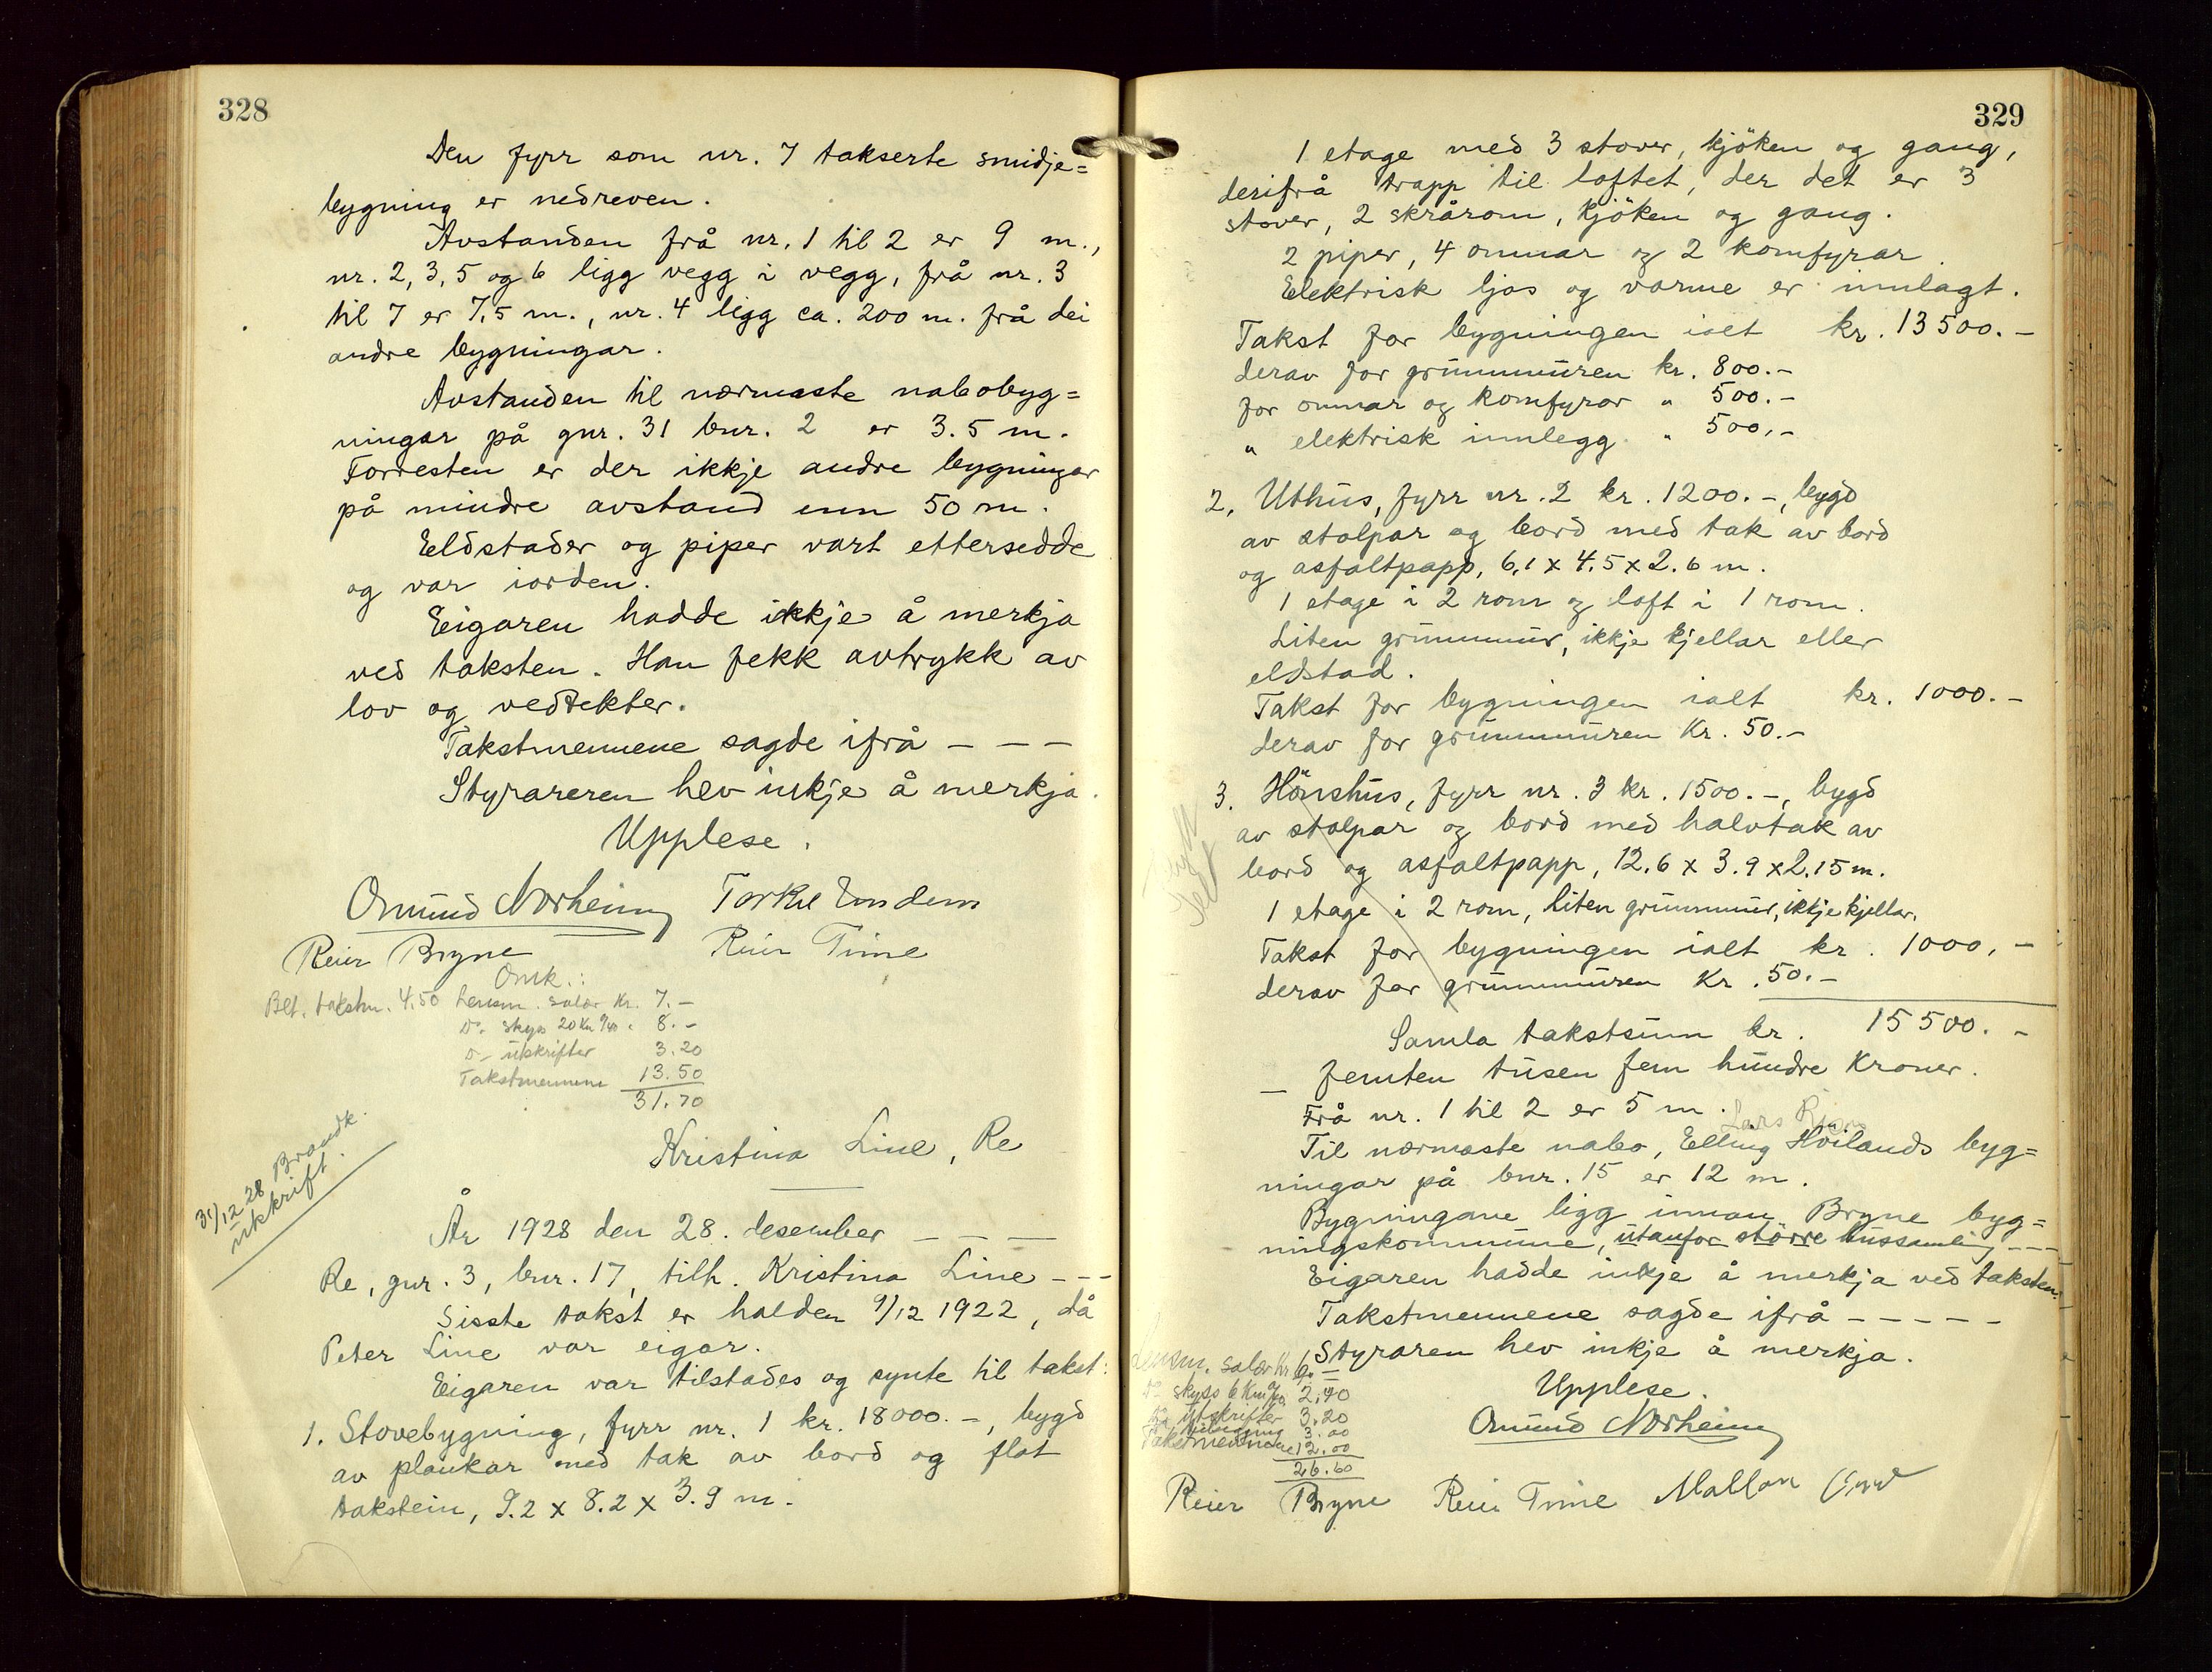 328
Den fyrr som nr. 7 takserte smidje=
bygning er nedreven.
Avstanden frå nr. 1 til 2 er 9 m.,
nr. 2, 3, 5 og 6 ligg vegg i vegg, frå nr. 3
til 7 er 7,5 m., nr. 4 ligg ca. 200 m. frå dei
andre bygningar.
Avstanden til nærmaste nabobyg=
ningar på gnr. 31 bnr. 2 er 3.5 m.
Forresten er der ikkje andre bygningar
på mindre avstand enn 50 m.
Eldstader og piper vart ettersedde
og var iorden.
Eigaren hadde ikkje å merkja
ved taksten. Han fekk avtrykk av
lov og vedtekter.
Takstmennene sagde ifrå - - -
Styrareren hev inkje å merkja.
Upplese.
Omund Norheim Torkel
Reier Bryne Reier Time
Omk.:
Bet. takstm. 4.50 lensm. salær Kr. 7.-
Do skyss 20 Km 8.-
D- utskrifter 3.20
Takstmennene 13.50
31.70
31/12 28 Brandk.
utskrift.
Kristina Line, Re
År 1928 den 28. desember - - -
Re, gnr. 3, bnr. 17, tilh. Kristina Line - - -
Sisste takst er halden 9/12 1922, då
Peter Line var eigar.
Eigaren var tilstades og synte til takst:
1. Stovebygning, fyrr nr. 1 kr. 18000.-, bygd
av plankar med tak av bord og flat
takstein, 9.2 x 8.2 x 3.9 m.
329
1 etage med 3 stover, kjöken og gang,
derifrå trapp til loftet, der det er 3
stover, 2 skrårom, kjöken og gang.
2 piper, 4 omnar og 2 komfyrar.
Elektrisk ljos og varme er innlagt.
Takst for bygningen ialt kr. 13500.-
derav for grunnmuren kr. 800.-
for omnar og komfyrar " 500.-
" elektrisk innlegg " 500,-
2. Uthus, fyrr nr. 2 kr. 1200.-, bygd
av stolpar og bord med tak av bord
og asfaltpapp, 6,1 x 4.5 x 2.6 m.
1 etage i 2 rom og loft i 1 rom.
Liten grunnmur, ikkje kjellar eller
eldstad.
Takst for bygningen ialt kr. 1000.-
derav for grunnmuren Kr. 50.-
3. Hönshus, fyrr nr. 3 kr. 1500.-, bygd
av stolpar og bord med halvtak av
bord og asfaltpapp, 12.6 x 3.9 x 2.15 m.
1 etage i 2 rom, liten grunnmur, ikkje kjellar.
Takst for bygningen ialt kr. 1000,-
derav for grunnmuren Kr. 50.-
Samla takstsum kr. 15500.-
- femten tusen fem hundre Kroner.
Frå nr. 1 til 2 er 5 m.
Lars
Til nærmaste nabo, Elling Höilands byg=
ningar på bnr. 15 er 12 m.
Bygningane ligg innan Bryne byg=
ningskommune, utanfor större hussamling - - -
Eigaren hadde inkje å merkja ved taksten.
Takstmennene sagde ifrå - - - - -
Styraren hev inkje å merkja.
Upplese.
Omund Norheim
Lensm. salær Kr 6.-
Do skyss 6 Km 2,40
Do utskrifter 3.20
3.00
Takstmennene 12.00
26.60
Reier Bryne Reier Time